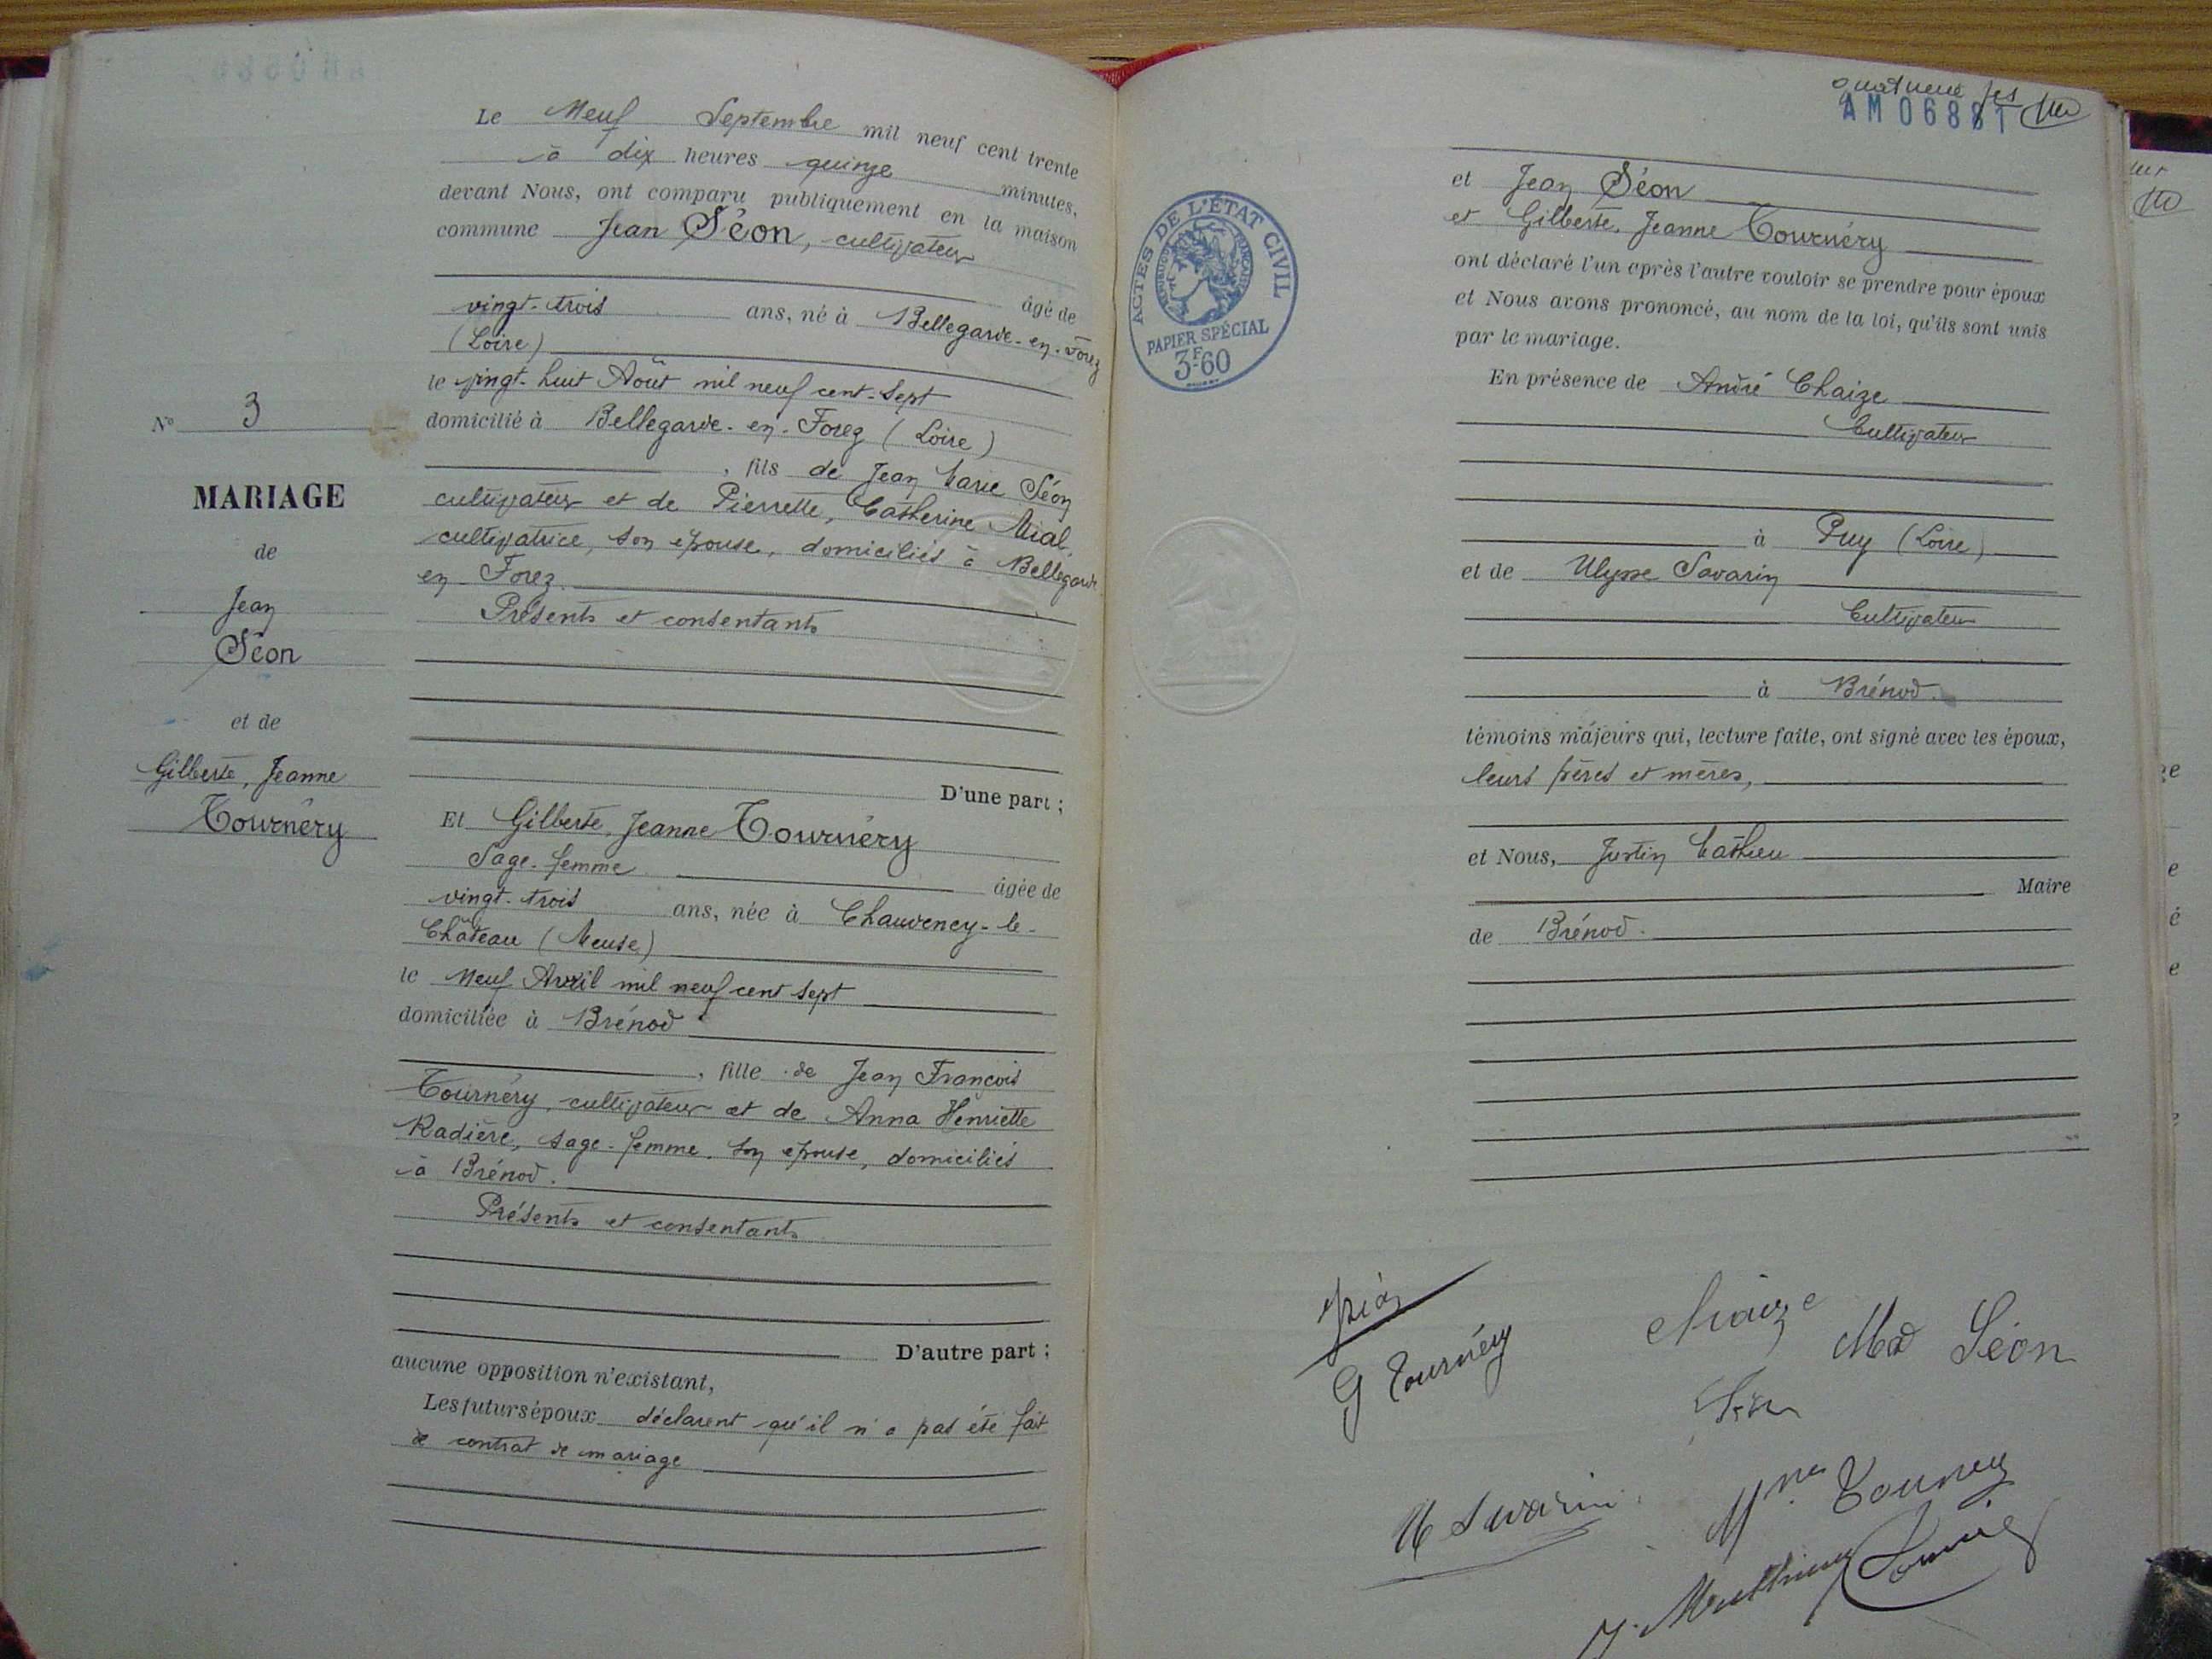 Le Neuf Septembre mil neuf cent trente
à dix heures quinze minutes,
devant Nous, ont comparu publiquement en la maison
commune Jean Séon, cultivateur
âgé de
vingt-trois ans, né à Bellegarde-en-Forez
(Loire)
le vingt-huit Août mil neuf cent-sept
domicilié à Bellegarde-en-Forez (Loire)
, fils de Jean Marie Séon
cultivateur et de Pierrette, Catherine Mial,
cultivatrice, son épouse, domiciliés à Bellegarde
en Forez.
Présents et consentants
D'une part ;
N° 3
MARIAGE
de
Jean
Séon
et de
Gilberte, Jeanne
Tournéry
Et Gilberte, Jeanne Tournéry
Sage-femme âgée de
vingt-trois ans, née à Chauvency-le-
Château (Meuse)
le Neuf Avril mil neuf cent sept
domiciliée à Brénod
, fille de Jean François
Tournéry, cultivateur et de Anna Henriette
Radière, sage-femme, son épouse, domiciliés
à Brénod.
Présents et consentants
D'autre part ;
aucune opposition n'existant,
Les futurs époux déclarent qu'il n'a pas été fait
de contrat de mariage
AM 06881
ACTES DE L'ÉTAT CIVIL
RÉPUBLIQUE FRANÇAISE
PAPIER SPÉCIAL
3F60
et Jean Séon
et Gilberte, Jeanne Tournéry
ont déclaré l'un après l'autre vouloir se prendre pour époux
et Nous avons prononcé, au nom de la loi, qu'ils sont unis
par le mariage.
En présence de André Chaize
Cultivateur
à Puy (Loire)
et de Ulysse Savarin
Cultivateur
à Brénod.
témoins majeurs qui, lecture faite, ont signé avec les époux,
leurs pères et mères,
et Nous, Justin Mathieu
Maire
de Brénod.
G Tournéry
Chaize
Séon
U Savarin
Mme Tournery
J. Matthieu